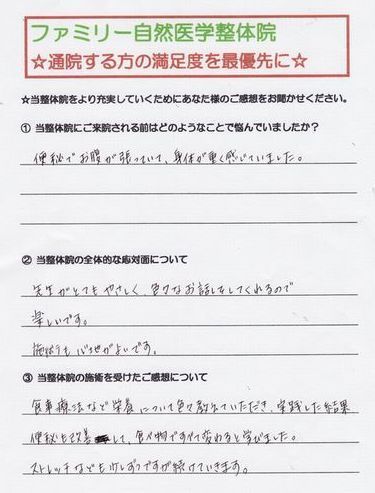 ファミリー自然医学整体院
☆通院する方の満足度を最優先に☆
☆当整体院をより充実していくためにあなた様のご感想をお聞かせください。
① 当整体院にご来院される前はどのようなことで悩んでいましたか？
便秘でお腹が張っていて、身体が重く感じていました。
② 当整体院の全体的な応対面について
先生がとてもやさしく、色々なお話しをしてくれるので
楽しいです。
施術も心地がよいです。
③ 当整体院の施術を受けたご感想について
食事療法など栄養について色々教えていただき、実践した結果
便秘も改善して、食べ物ですべて変わると学びました。
ストレッチなども少しずつですが続けていきます。